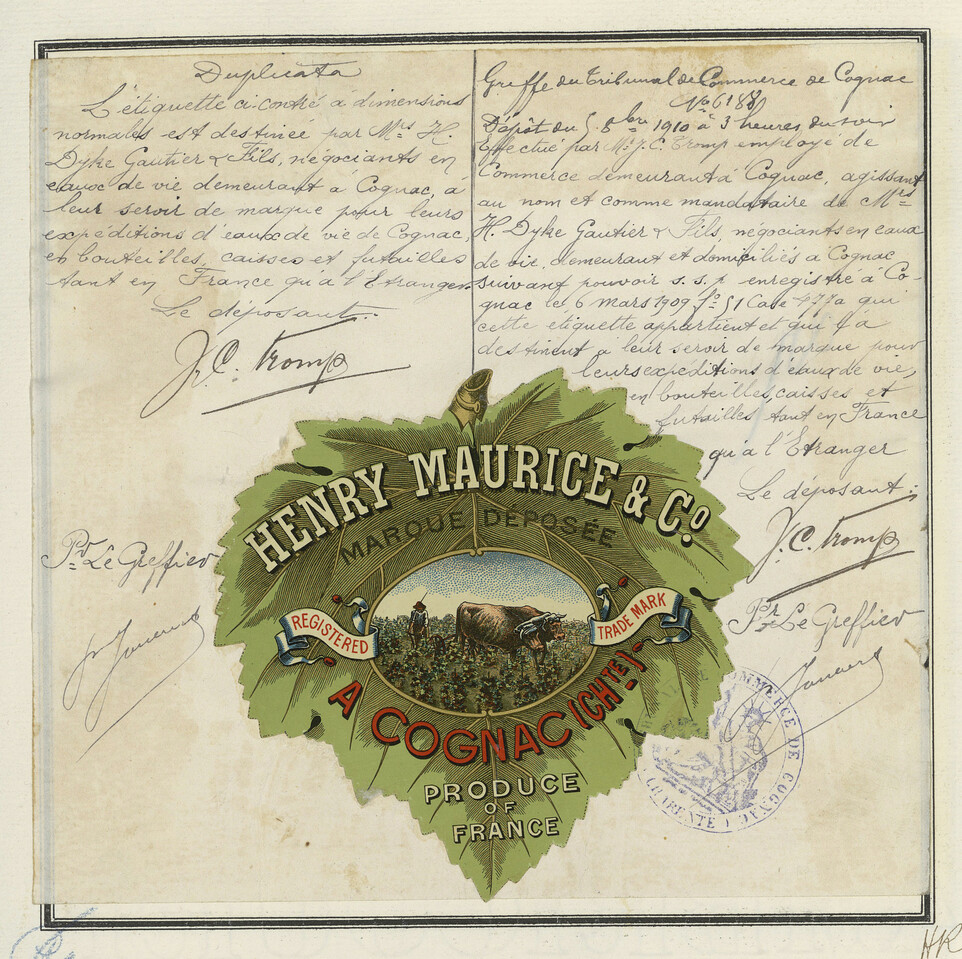 Duplicata
L'étiquette ci-contre à dimensions
normales est destinée par Mrs H.
Dyke Gautier & Fils, négociants en
eaux de vie demeurant à Cognac, à
leur servir de marque pour leurs
expéditions d'eaux de vie de Cognac,
en bouteilles, caisses et futailles
tant en France qu'à l'Etranger.
Le déposant:
J. C. Tromp
Pr. Le Greffier
Greffe du Tribunal de Commerce de Cognac
No 6188
Dépôt du 5 8bre 1910 à 3 heures du soir
Effectué par Mr J. C. Tromp employé de
Commerce demeurant à Cognac, agissant
au nom et comme mandataire de Mrs
H. Dyke Gautier & Fils, négociants en eaux
de vie, demeurant et domiciliés à Cognac
suivant pouvoir s. s. p enregistré à Co-
gnac le 6 Mars 1909 fo 51 Case 477 a qui
cette etiquette appartient et qui l'a
destinent à leur servir de marque pour
leurs expéditions d'eaux de vie,
en bouteilles, caisses et
futailles tant en France
qu'à l'Etranger
Le déposant:
J. C. Tromp
Pr Le Greffier
HENRY MAURICE & Co.
MARQUE DÉPOSÉE
REGISTERED
TRADE MARK
A COGNAC (CHTE)
PRODUCE
OF
FRANCE
COMMERCE DE COGNAC
(CHARENTE)
HR